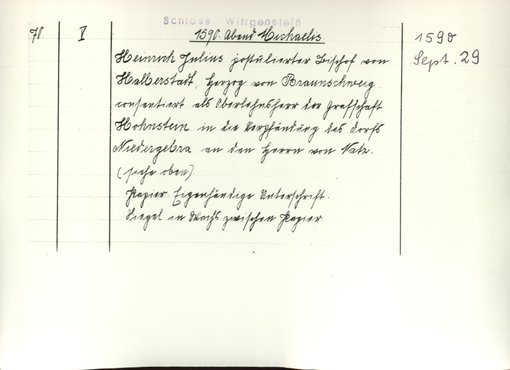 Schloss Wittgenstein
70 I 1590. Abend Michaelis 1590
Sept. 29
Heinrich Julius postulierter Bischof von
Halberstadt, Herzog von Braunschweig
consentiert als Oberlehnsherr der Grafschaft
Hohnstein in die Verpfändung des Dorfs
Niedergebra an den Herrn von
(siehe oben)
Papier Eigenhändige Unterschrift.
Siegel in Wachs zwischen Papier.